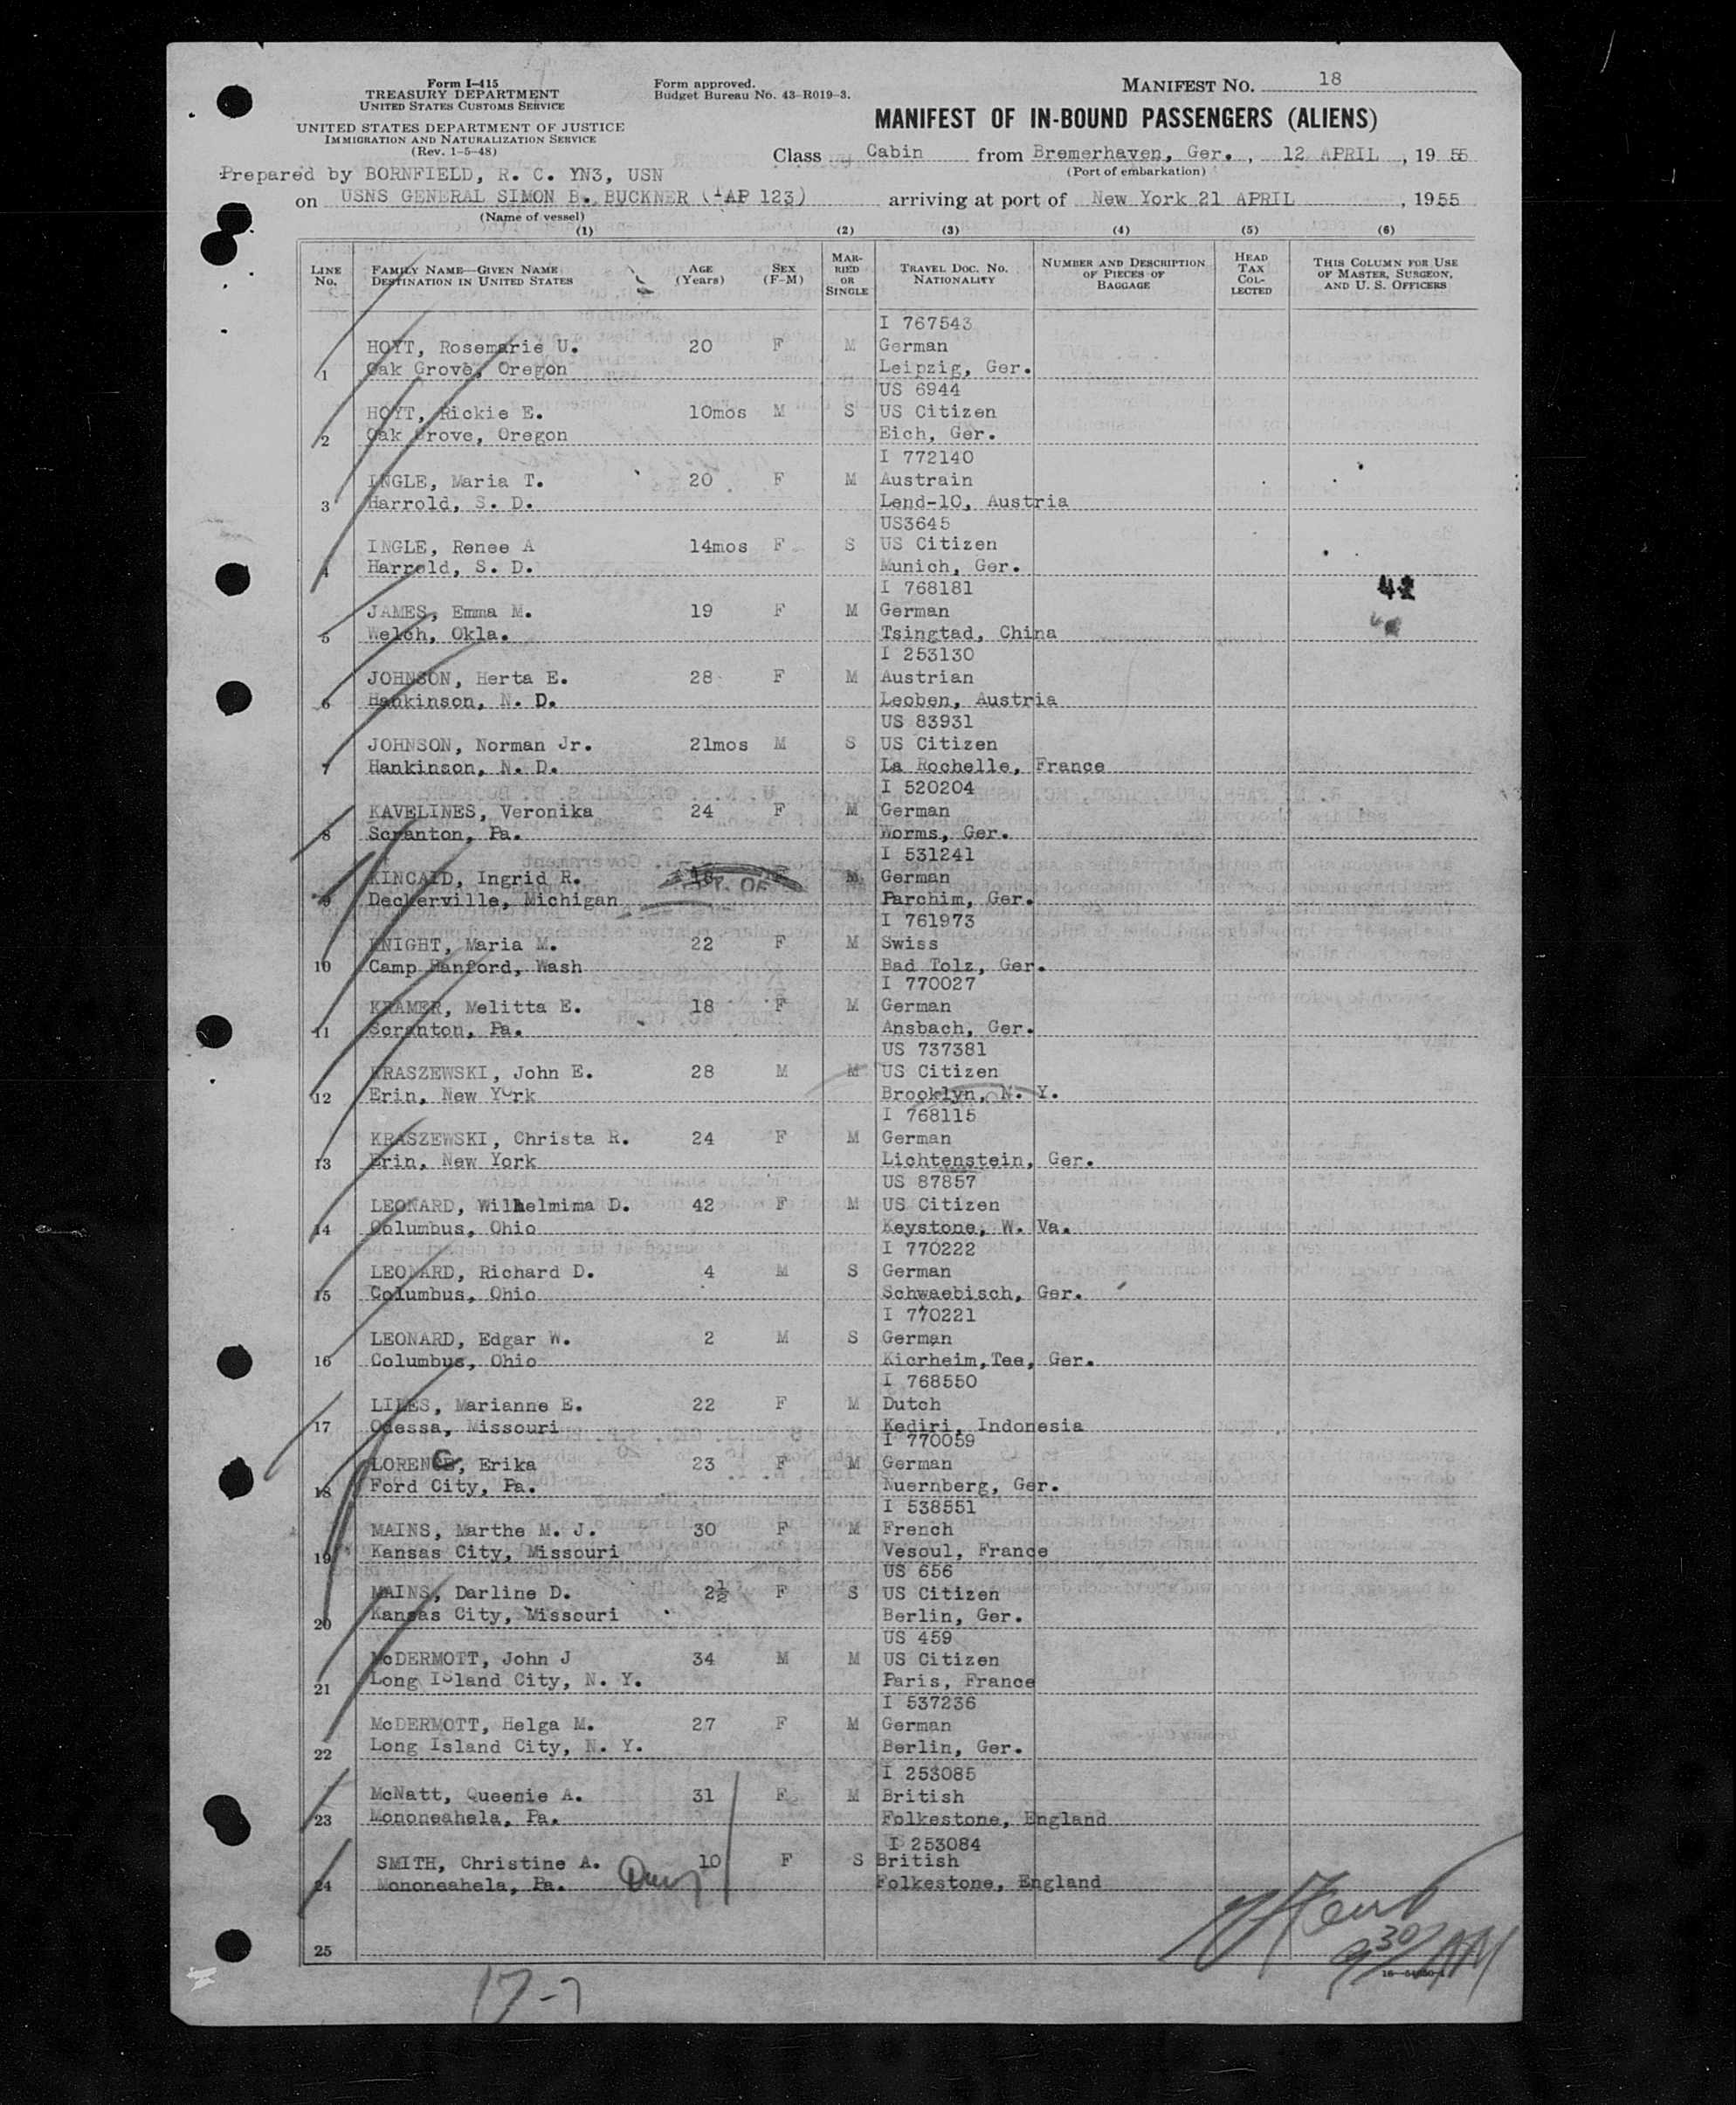 Form I-415
TREASURY DEPARTMENT
UNITED STATES CUSTOMS SERVICE
UNITED STATES DEPARTMENT OF JUSTICE
IMMIGRATION AND NATURALIZATION SERVICE
(Rev. 1-5-48)
Form approved.
Budget Bureau No. 43-R019-3.
MANIFEST NO. 18
MANIFEST OF IN-BOUND PASSENGERS (ALIENS)
Class Cabin from Bremerhaven, Ger., 12 APRIL, 1955
(Port of embarkation)
Prepared by BORNFIELD, R. C. YN3, USN
on USNS GENERAL SIMON B. BUCKNER (TAP 123) arriving at port of New York 21 APRIL, 1955
(Name of vessel)
(1) (2) (3) (4) (5) (6)
LINE No. FAMILY NAME—GIVEN NAME DESTINATION IN UNITED STATES AGE (Years) SEX (F-M) MARRIED OR SINGLE TRAVEL DOC. NO. NATIONALITY NUMBER AND DESCRIPTION OF PIECES OF BAGGAGE HEAD TAX COLLECTED THIS COLUMN FOR USE OF MASTER, SURGEON, AND U. S. OFFICERS
I 767543
HOYT, Rosemarie U. 20 F M German
1 Oak Grove, Oregon Leipzig, Ger.
US 6944
HOYT, Rickie E. 10mos M S US Citizen
2 Oak Grove, Oregon Eich, Ger.
I 772140
INGLE, Maria T. 20 F M Austrain
3 Harrold, S. D. Lend-10, Austria
US3645
INGLE, Renee A 14mos F S US Citizen
4 Harrold, S. D. Munich, Ger.
I 768181
JAMES, Emma M. 19 F M German
5 Welch, Okla. Tsingtad, China
I 253130
JOHNSON, Herta E. 28 F M Austrian
6 Hankinson, N. D. Leoben, Austria
US 83931
JOHNSON, Norman Jr. 21mos M S US Citizen
7 Hankinson, N. D. La Rochelle, France
I 520204
KAVELINES, Veronika 24 F M German
8 Scranton, Pa. Worms, Ger.
I 531241
KINCAID, Ingrid R. M German
9 Deckerville, Michigan Parchim, Ger.
I 761973
KNIGHT, Maria M. 22 F M Swiss
10 Camp Hanford, Wash Bad Tolz, Ger.
I 770027
KRAMER, Melitta E. 18 F M German
11 Scranton, Pa. Ansbach, Ger.
US 737381
KRASZEWSKI, John E. 28 M M US Citizen
12 Erin, New York Brooklyn, N. Y.
I 768115
KRASZEWSKI, Christa R. 24 F M German
13 Erin, New York Lichtenstein, Ger.
US 87857
LEONARD, Wilhelmima D. 42 F M US Citizen
14 Columbus, Ohio Keystone, W. Va.
I 770222
LEONARD, Richard D. 4 M S German
15 Columbus, Ohio Schwaebisch, Ger.
I 770221
LEONARD, Edgar W. 2 M S German
16 Columbus, Ohio Kicrheim,Tee, Ger.
I 768550
LILES, Marianne E. 22 F M Dutch
17 Odessa, Missouri Kediri, Indonesia
I 770059
Erika 23 F M German
18 Ford City, Pa. Nuernberg, Ger.
I 538551
MAINS, Marthe M. J. 30 F M French
19 Kansas City, Missouri Vesoul, France
US 656
MAINS, Darline D. 2½ F S US Citizen
20 Kansas City, Missouri Berlin, Ger.
US 459
McDERMOTT, John J 34 M M US Citizen
21 Long Island City, N. Y. Paris, France
I 537236
McDERMOTT, Helga M. 27 F M German
22 Long Island City, N. Y. Berlin, Ger.
I 253085
McNatt, Queenie A. 31 F M British
23 Mononeahela, Pa. Folkestone, England
I 253084
SMITH, Christine A. 10 F S British
24 Mononeahela, Pa. Folkestone, England
25
9 30 AM
17-7